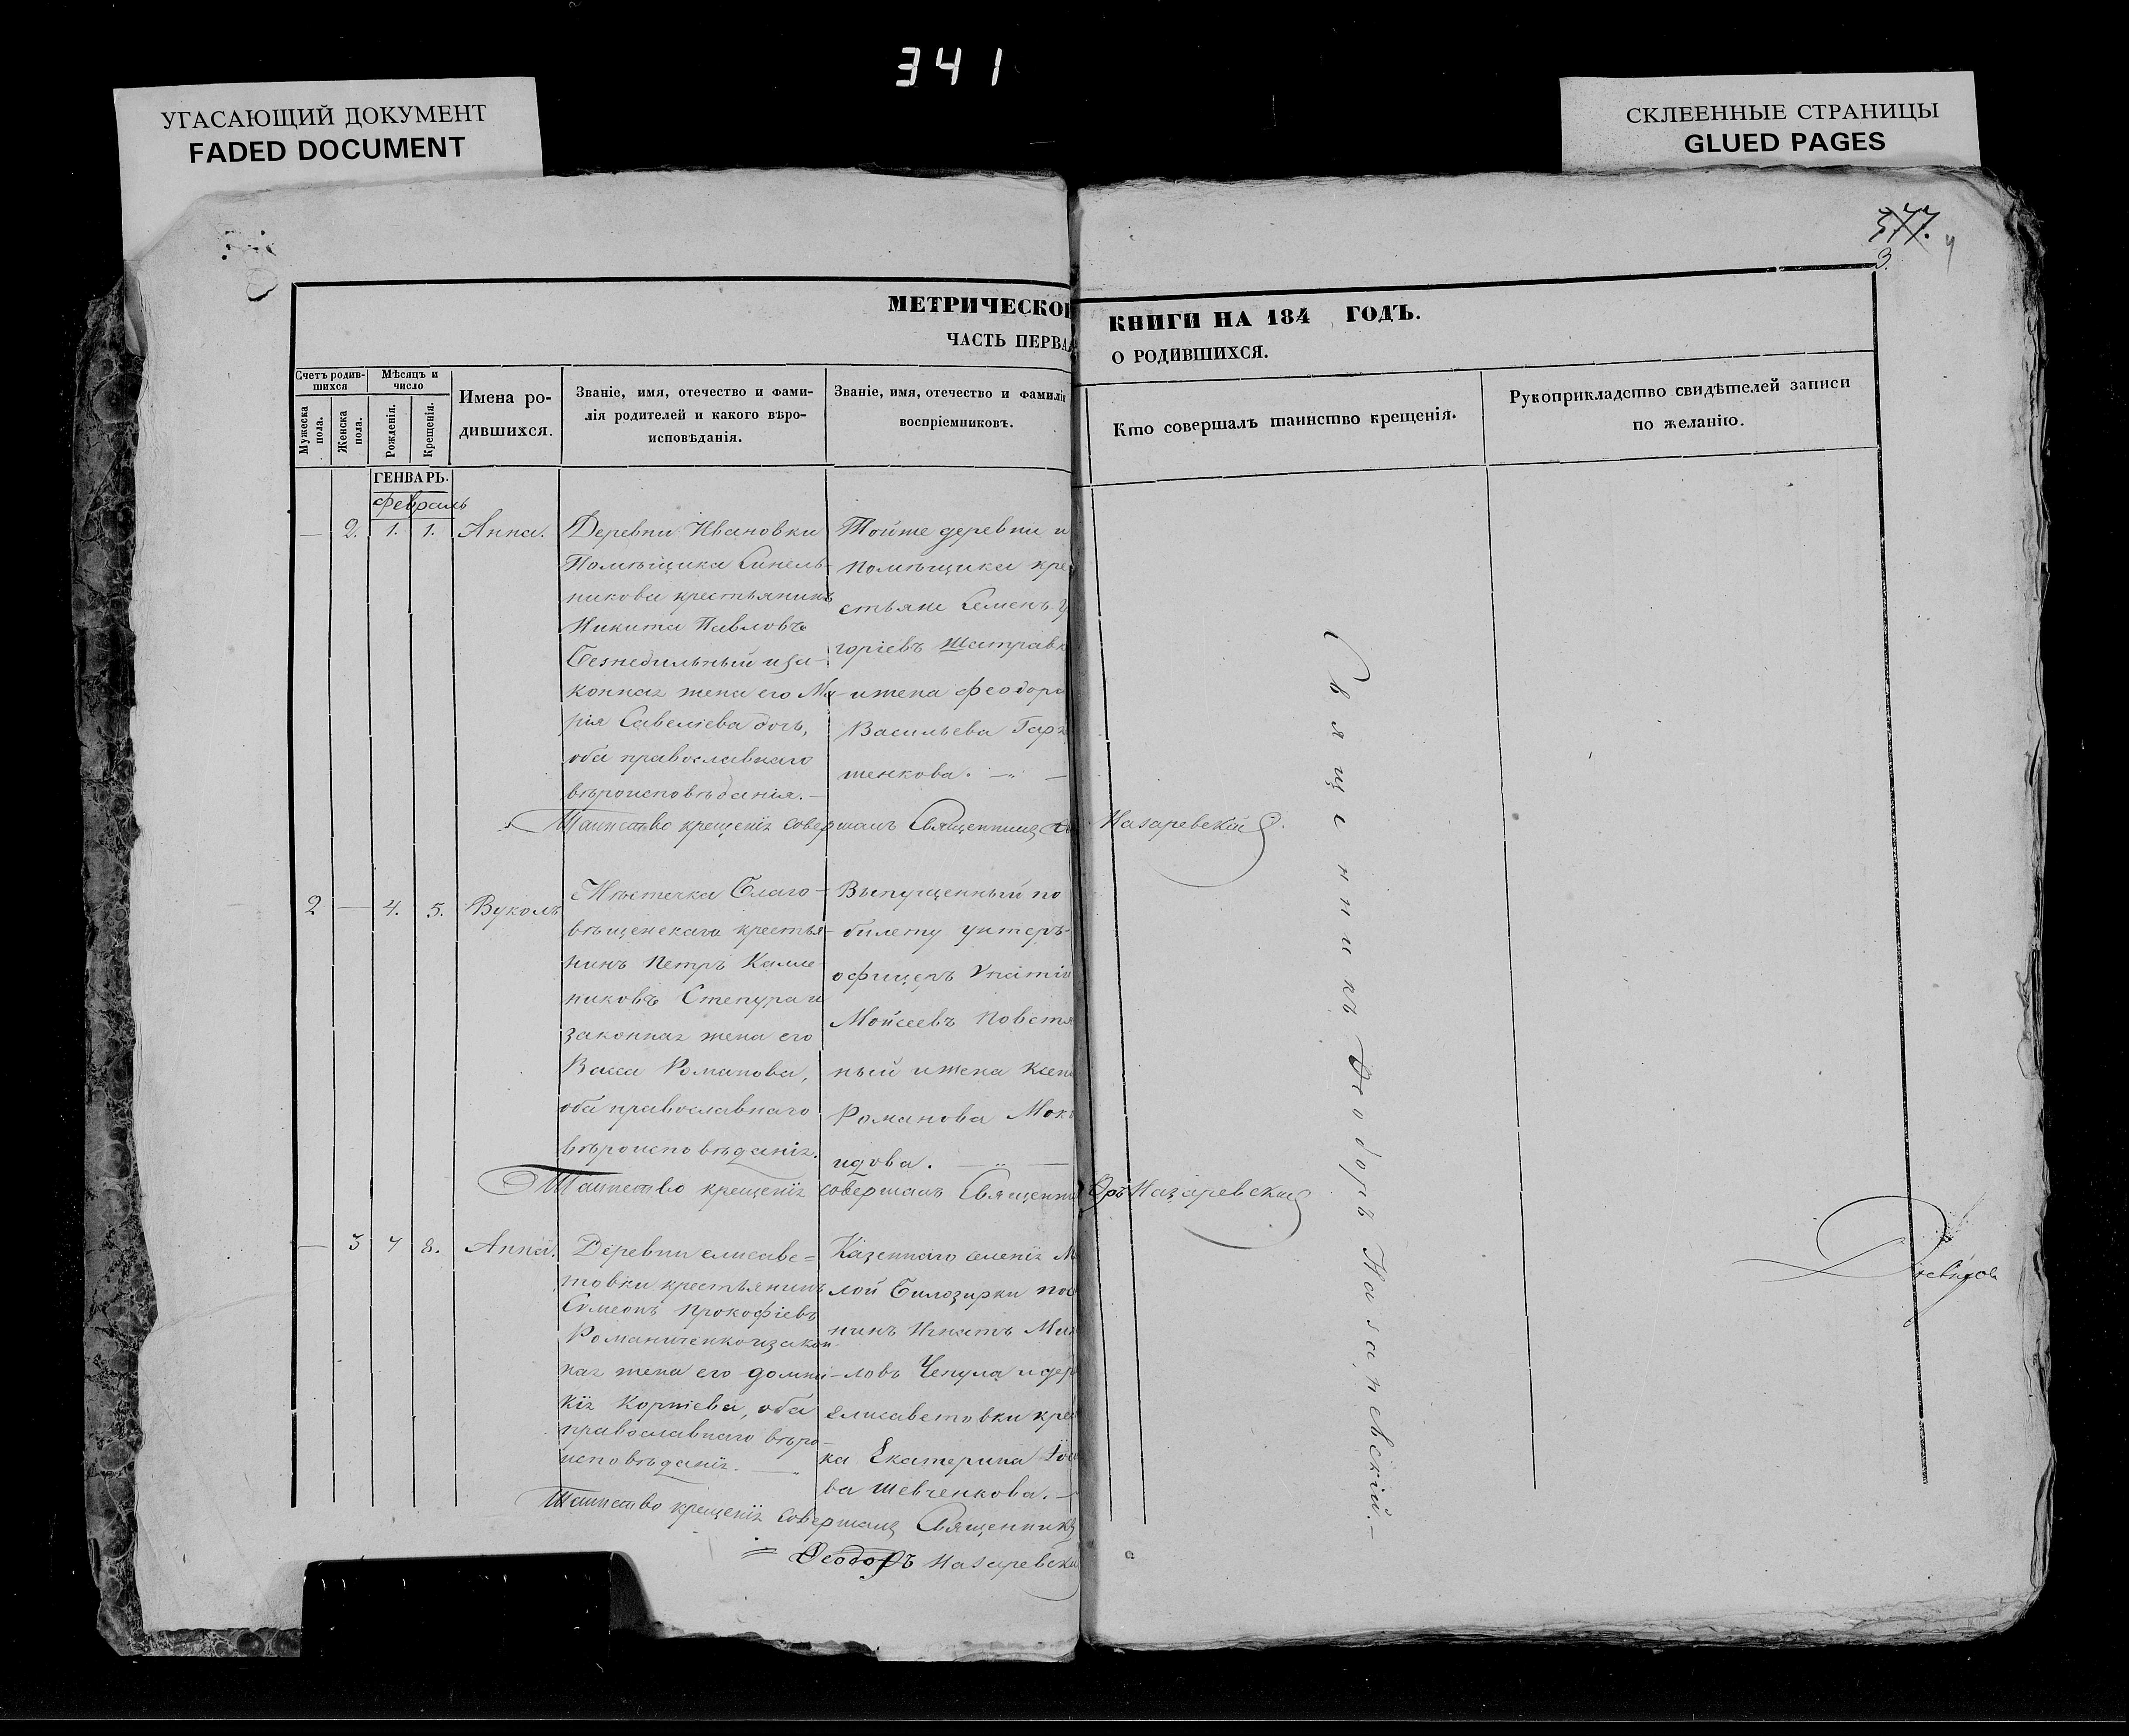 341
УГАСАЮЩИЙ ДОКУМЕНТ
FADED DOCUMENT
СКЛЕЕННЫЕ СТРАНИЦЫ
GLUED PAGES
377.
3.
МЕТРИЧЕСКОЙ
ЧАСТЬ ПЕРВАЯ
КНИГИ НА 184 ГОДЪ.
О РОДИВШИХСЯ.
Счетъ родив-
шихся
Мужеска пола.
Женска пола.
Мѣсяцъ и
число
Рожденія.
Крещенія.
Имена ро-
дившихся.
Званіе, имя, отечество и фами-
лія родителей и какого вѣро-
исповѣданія.
Званіе, имя, отечество и фамилія
воспріемниковъ.
Кто совершалъ таинство крещенія.
Рукоприкладство свидѣтелей записи
по желанію.
ГЕНВАРЬ.
Февраль
— 2. 1. 1. Анна.
Деревни Ивановки
Помѣщика Синель-
никова крестьянинъ
Никита Павловъ
Безпедильный и за-
конная жена его Ма-
рія Савеліева дочь,
оба православнаго
вѣроисповѣданія.—
Тойже деревни и
помѣщика кре
стьяне Семенъ
горіевъ Шатравк
и жена Феодора
Васильева Гар
шенкова. —"—
Таинство крещенія совершалъ Священникъ
Назаревскій
2 — 4. 5. Вуколъ
Мѣстечка Благо-
вѣщенскаго крестья-
нинъ Петръ Калле-
никовъ Степура и
законная жена его
Васса Романова,
оба православнаго
вѣроисповѣданія.
Выпущенный по
билету унтеръ-
офицеръ Ѵпатій
Моисеевъ Повстя
ный и жена Ксен
Романова Мок
идова. —"—
Таинство крещенія совершалъ Священни
Назаревскій
— 3 7 8. Анна.
Деревни Елисаве=
товки крестьянинъ
Сѵмеонъ Прокофіевъ
Романиченко и закон-
ная жена его Домни-
кія Корніева, оба
православнаго вѣро-
исповѣданія. —"
Казеннаго селенія М
лой Билозирки пос
нинъ Игнатъ Ми
ловъ Чепула и дер
Елисаветовки кре
ка Екатерина
ва Шевченкова.—
Таинство крещенія совершалъ Священникъ
= Ѳеодоръ Назаревскі
Священникъ Ѳеодоръ Назаревскій.—